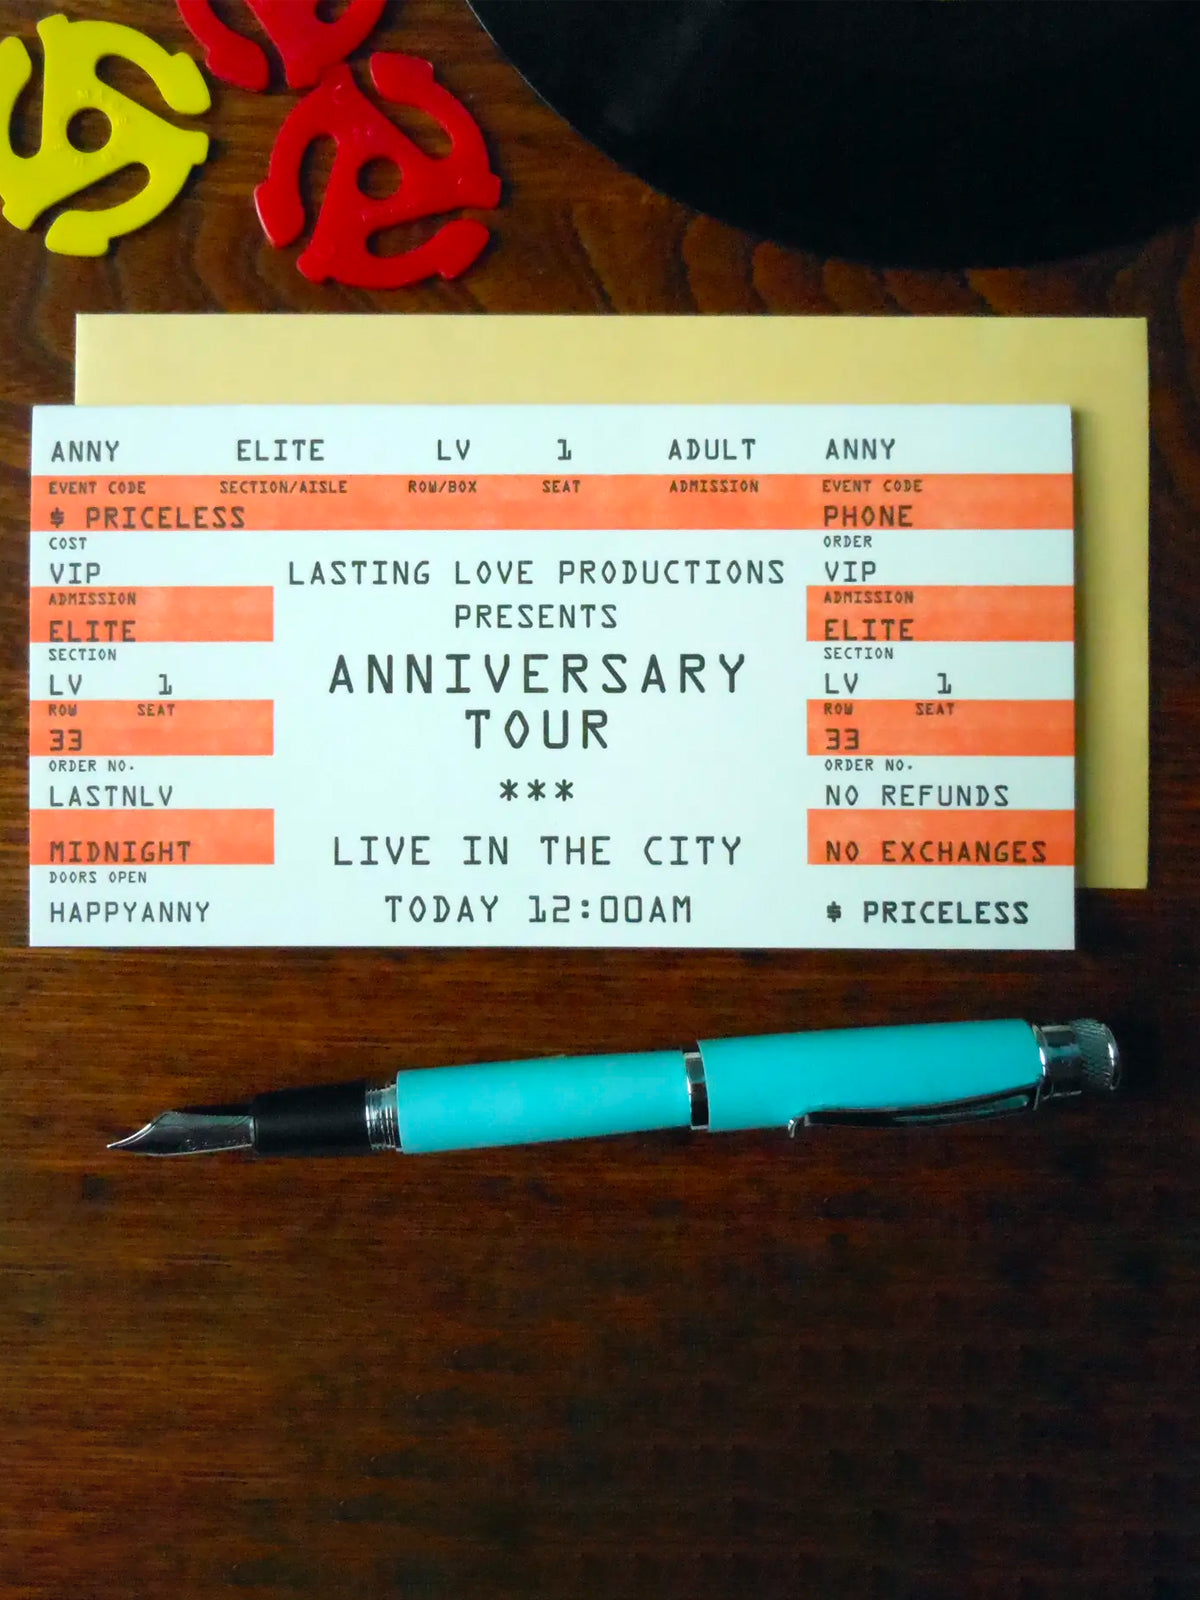 ANNY ELITE LV 1 ADULT ANNY
EVENT CODE SECTION/AISLE ROW/BOX SEAT ADMISSION EVENT CODE
$ PRICELESS PHONE
COST ORDER
VIP LASTING LOVE PRODUCTIONS VIP
ADMISSION PRESENTS ADMISSION
ELITE ELITE
SECTION ANNIVERSARY SECTION
LV 1 LV 1
ROW SEAT TOUR ROW SEAT
33 33
ORDER NO. ORDER NO.
LASTNLV *** NO REFUNDS
MIDNIGHT LIVE IN THE CITY NO EXCHANGES
DOORS OPEN
HAPPYANNY TODAY 12:00AM $ PRICELESS